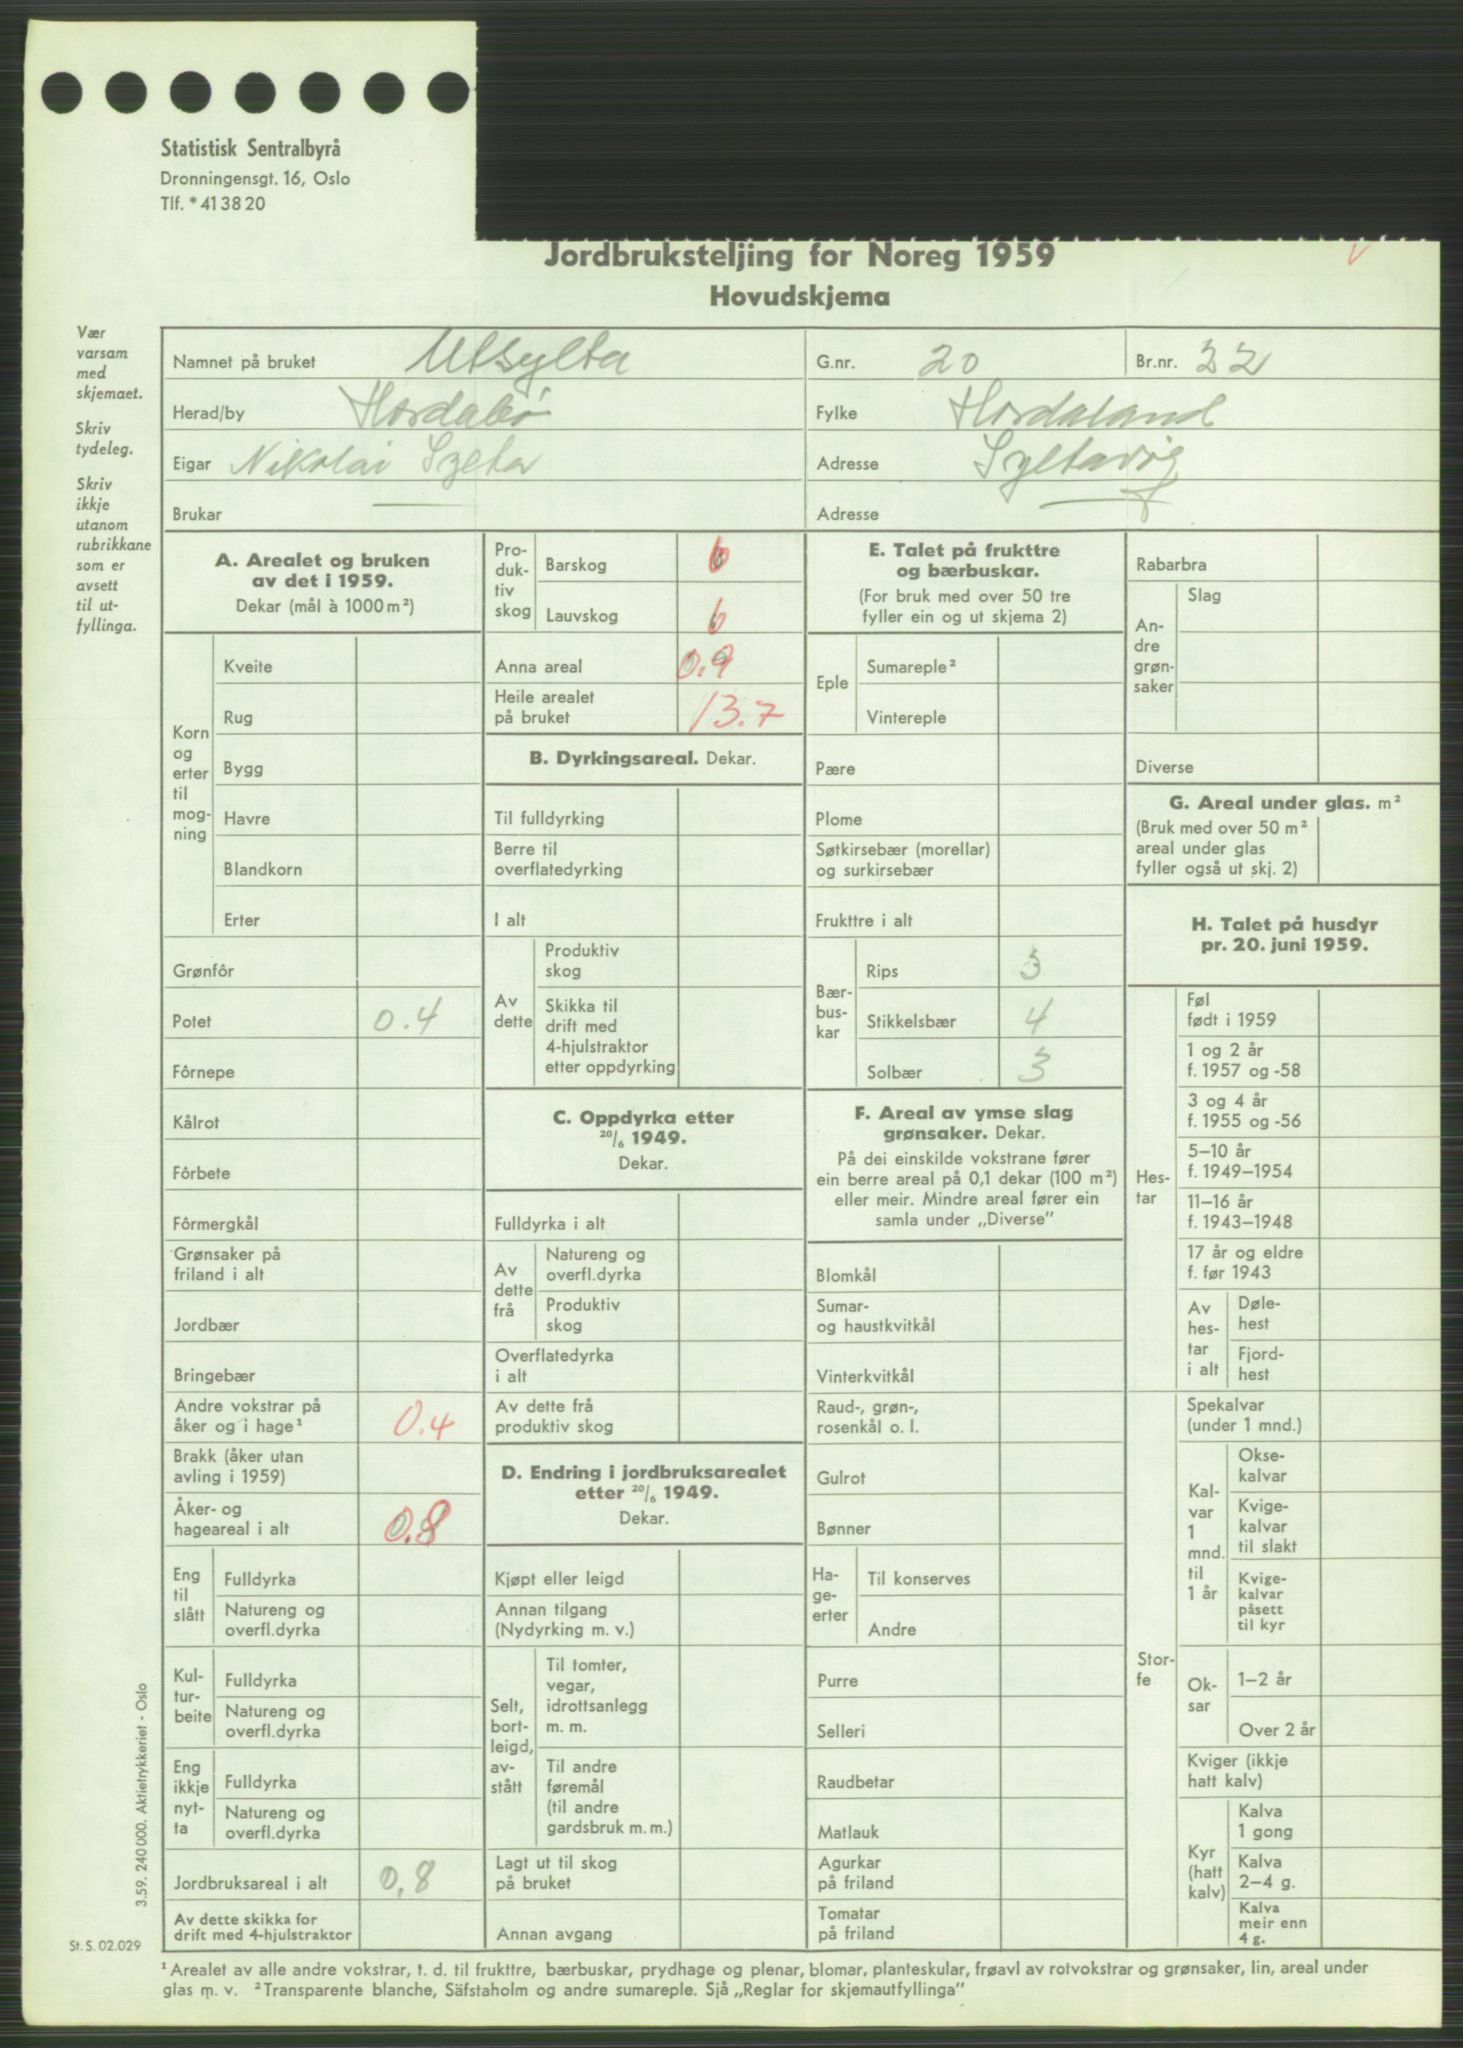 Statistisk Sentralbyrå
Dronningensgt. 16, Oslo
Tlf. * 41 38 20
Jordbruksteljing for Noreg 1959
Hovudskjema
V
Vær
varsam
med
skjemaet.
Skriv
tydeleg.
Skriv
ikkje
utanom
rubrikkane
som er
avsett
til ut-
fyllinga.
Namnet på bruket Utsylta G.nr. 20 Br.nr. 32
Herad/by Hordabø Fylke Hordaland
Eigar Nikolai Sylta Adresse Syltavåg
Brukar — Adresse —
A. Arealet og bruken
av det i 1959.
Dekar (mål à 1000 m²)
Korn
og
erter
til
mog-
ning
Kveite
Rug
Bygg
Havre
Blandkorn
Erter
Grønfôr
Potet 0.4
Fôrnepe
Kålrot
Fôrbete
Fôrmergkål
Grønsaker på
friland i alt
Jordbær
Bringebær
Andre vokstrar på
åker og i hage¹ 0.4
Brakk (åker utan
avling i 1959)
Åker- og
hageareal i alt 0.8
Eng
til
slått
Fulldyrka
Natureng og
overfl.dyrka
Kul-
tur-
beite
Fulldyrka
Natureng og
overfl.dyrka
Eng
ikkje
nyt-
ta
Fulldyrka
Natureng og
overfl.dyrka
Jordbruksareal i alt 0,8
Av dette skikka for
drift med 4-hjulstraktor
Pro-
duk-
tiv
skog
Barskog 6
Lauvskog 6
Anna areal 0.9
Heile arealet
på bruket 13.7
B. Dyrkingsareal. Dekar.
Til fulldyrking
Berre til
overflatedyrking
I alt
Av
dette
Produktiv
skog
Skikka til
drift med
4-hjulstraktor
etter oppdyrking
C. Oppdyrka etter
20/6 1949.
Dekar.
Fulldyrka i alt
Av
dette
frå
Natureng og
overfl.dyrka
Produktiv
skog
Overflatedyrka
i alt
Av dette frå
produktiv skog
D. Endring i jordbruksarealet
etter 20/6 1949.
Dekar.
Kjøpt eller leigd
Annan tilgang
(Nydyrking m. v.)
Selt,
bort-
leigd,
av-
stått
Til tomter,
vegar,
idrottsanlegg
m. m.
Til andre
føremål
(til andre
gardsbruk m. m.)
Lagt ut til skog
på bruket
Annan avgang
E. Talet på frukttre
og bærbuskar.
(For bruk med over 50 tre
fyller ein og ut skjema 2)
Eple
Sumareple²
Vintereple
Pære
Plome
Søtkirsebær (morellar)
og surkirsebær
Frukttre i alt
Bær-
bus-
kar
Rips 3
Stikkelsbær 4
Solbær 3
F. Areal av ymse slag
grønsaker. Dekar.
På dei einskilde vokstrane fører
ein berre areal på 0,1 dekar (100 m²)
eller meir. Mindre areal fører ein
samla under „Diverse”
Blomkål
Sumar-
og haustkvitkål
Vinterkvitkål
Raud-, grøn-,
rosenkål o. l.
Gulrot
Bønner
Ha-
ge-
erter
Til konserves
Andre
Purre
Selleri
Raudbetar
Matlauk
Agurkar
på friland
Tomatar
på friland
Rabarbra
An-
dre
grøn-
saker
Slag
Diverse
G. Areal under glas. m²
(Bruk med over 50 m²
areal under glas
fyller også ut skj. 2)
H. Talet på husdyr
pr. 20. juni 1959.
Hes-
tar
Føl
født i 1959
1 og 2 år
f. 1957 og -58
3 og 4 år
f. 1955 og -56
5–10 år
f. 1949–1954
11–16 år
f. 1943–1948
17 år og eldre
f. før 1943
Av
hes-
tar
i alt
Døle-
hest
Fjord-
hest
Stor-
fe
Spekalvar
(under 1 mnd.)
Kal-
var
1
mnd.
til
1 år
Okse-
kalvar
Kvige-
kalvar
til slakt
Kvige-
kalvar
påsett
til kyr
Ok-
sar
1–2 år
Over 2 år
Kviger (ikkje
hatt kalv)
Kyr
(hatt
kalv)
Kalva
1 gong
Kalva
2–4 g.
Kalva
meir enn
4 g.
3.59. 240 000. Aktietrykkeriet - Oslo
St. S. 02.029
¹ Arealet av alle andre vokstrar, t. d. til frukttre, bærbuskar, prydhage og plenar, blomar, planteskular, frøavl av rotvokstrar og grønsaker, lin, areal under
glas m. v. ² Transparente blanche, Säfstaholm og andre sumareple. Sjå „Reglar for skjemautfyllinga”